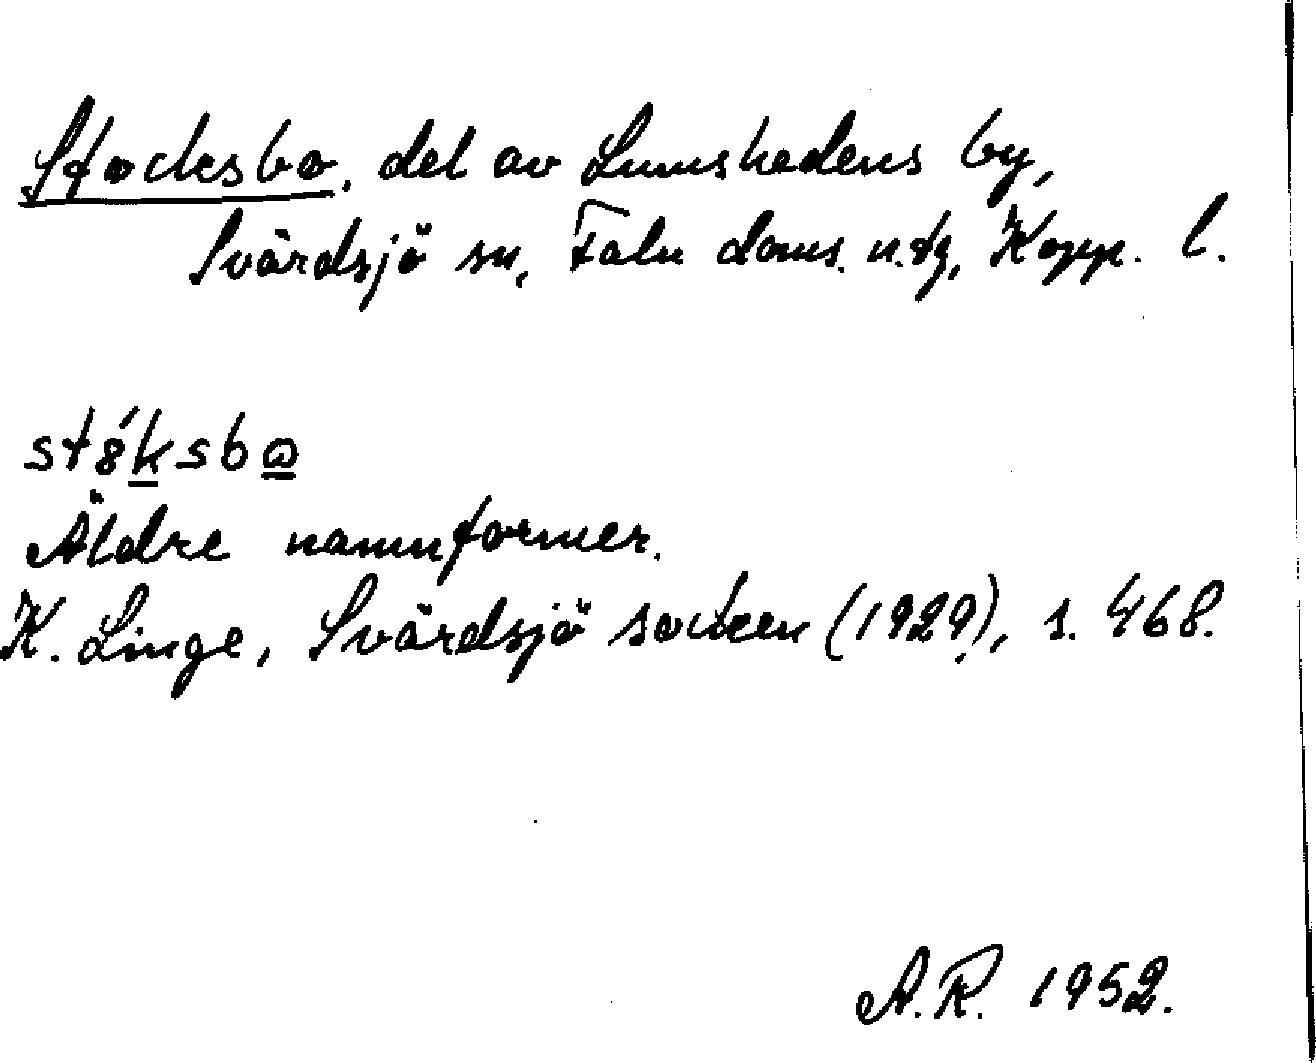 Stocksbo, del av Lumshedens by,
Svärdsjö sn, Falu doms. n. tg, Kopp. l.
st8́ksbω
Äldre namnformer.
K. Linge, Svärdsjö socken (1929), s. 468.
A.R. 1952.